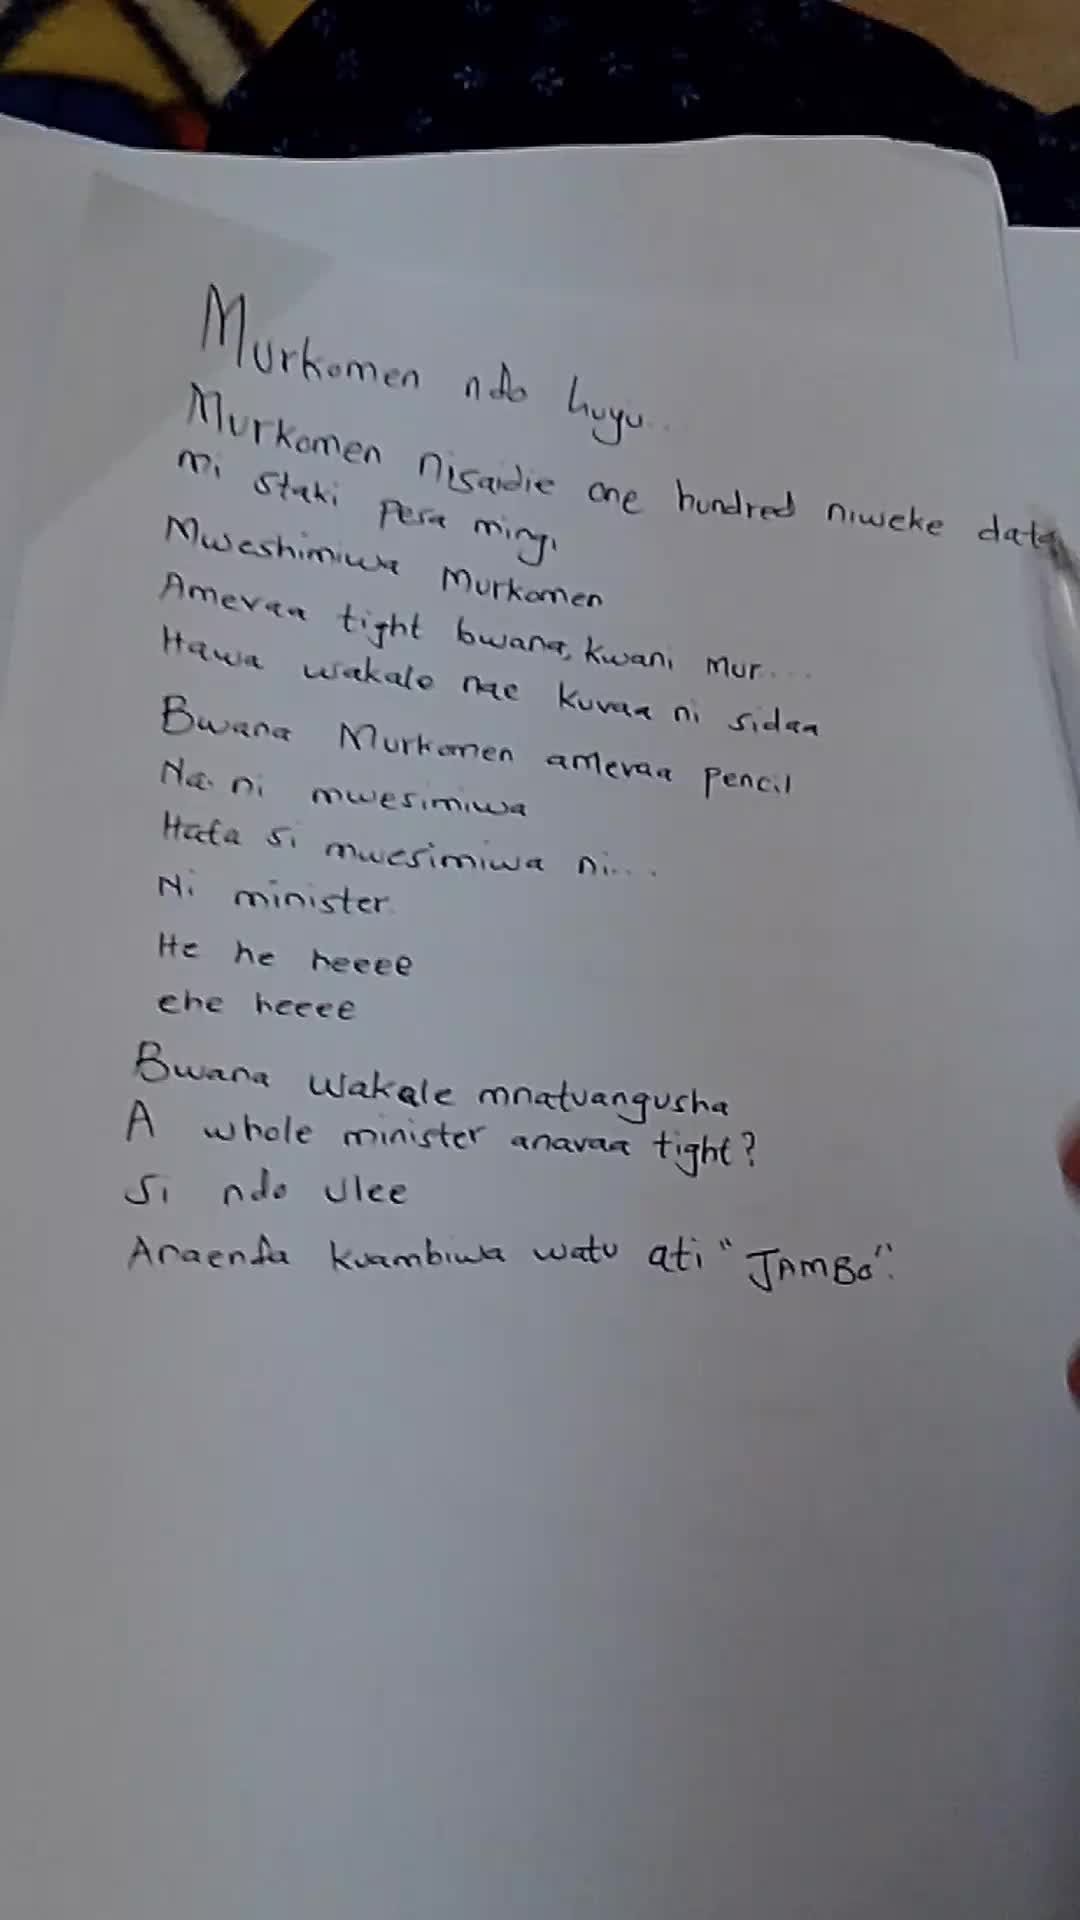 Murkomen ndo huyu...
Murkomen nisaidie one hundred niweke data
mi staki pesa mingi
Mweshimiwa Murkomen
Amevaa tight bwana, kwani Mur....
Hawa wakale nae kuvaa ni sidaa
Bwana Murkomen amevaa pencil
Na ni mwesimiwa
Hata si mwesimiwa ni...
Ni minister.
He he heeee
ehe heeee
Bwana wakale mnatuangusha
A whole minister anavaa tight?
Si ndo ulee
Anaenda kuambiwa watu ati "JAMBO".